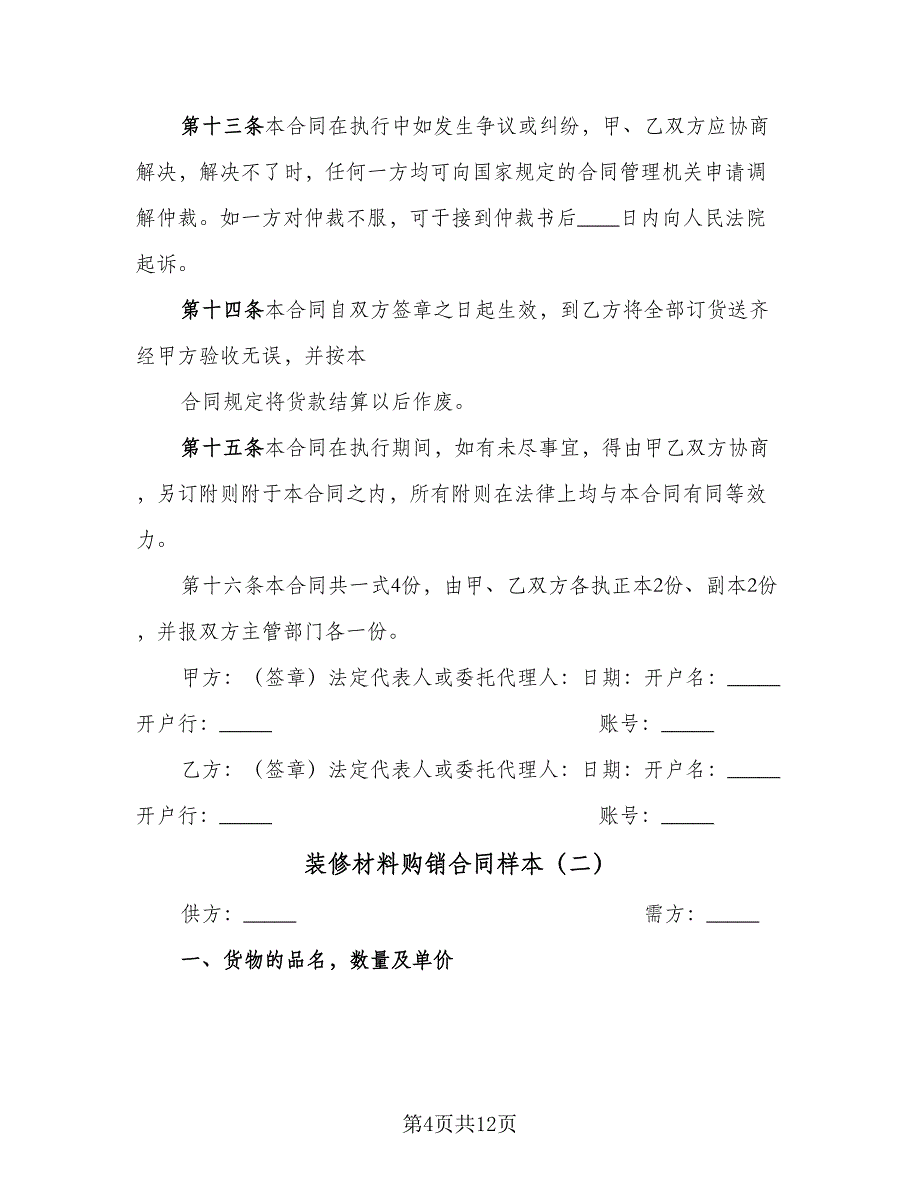 第十三条本合同在执行中如发生争议或纠纷，甲、乙双方应协商
解决，解决不了时，任何一方均可向国家规定的合同管理机关申请调
解仲裁。如一方对仲裁不服，可于接到仲裁书后____日内向人民法院
起诉。
第十四条本合同自双方签章之日起生效，到乙方将全部订货送齐
经甲方验收无误，并按本
合同规定将货款结算以后作废。
第十五条本合同在执行期间，如有未尽事宜，得由甲乙双方协商
，另订附则附于本合同之内，所有附则在法律上均与本合同有同等效
力。
第十六条本合同共一式4份，由甲、乙双方各执正本2份、副本2份
，并报双方主管部门各一份。
甲方：（签章）法定代表人或委托代理人：日期：开户名：_____
开户行：_____ 账号：_____
乙方：（签章）法定代表人或委托代理人：日期：开户名：_____
开户行：_____ 账号：_____
装修材料购销合同样本（二）
供方：_____ 需方：_____
一、货物的品名，数量及单价
第4页共12页